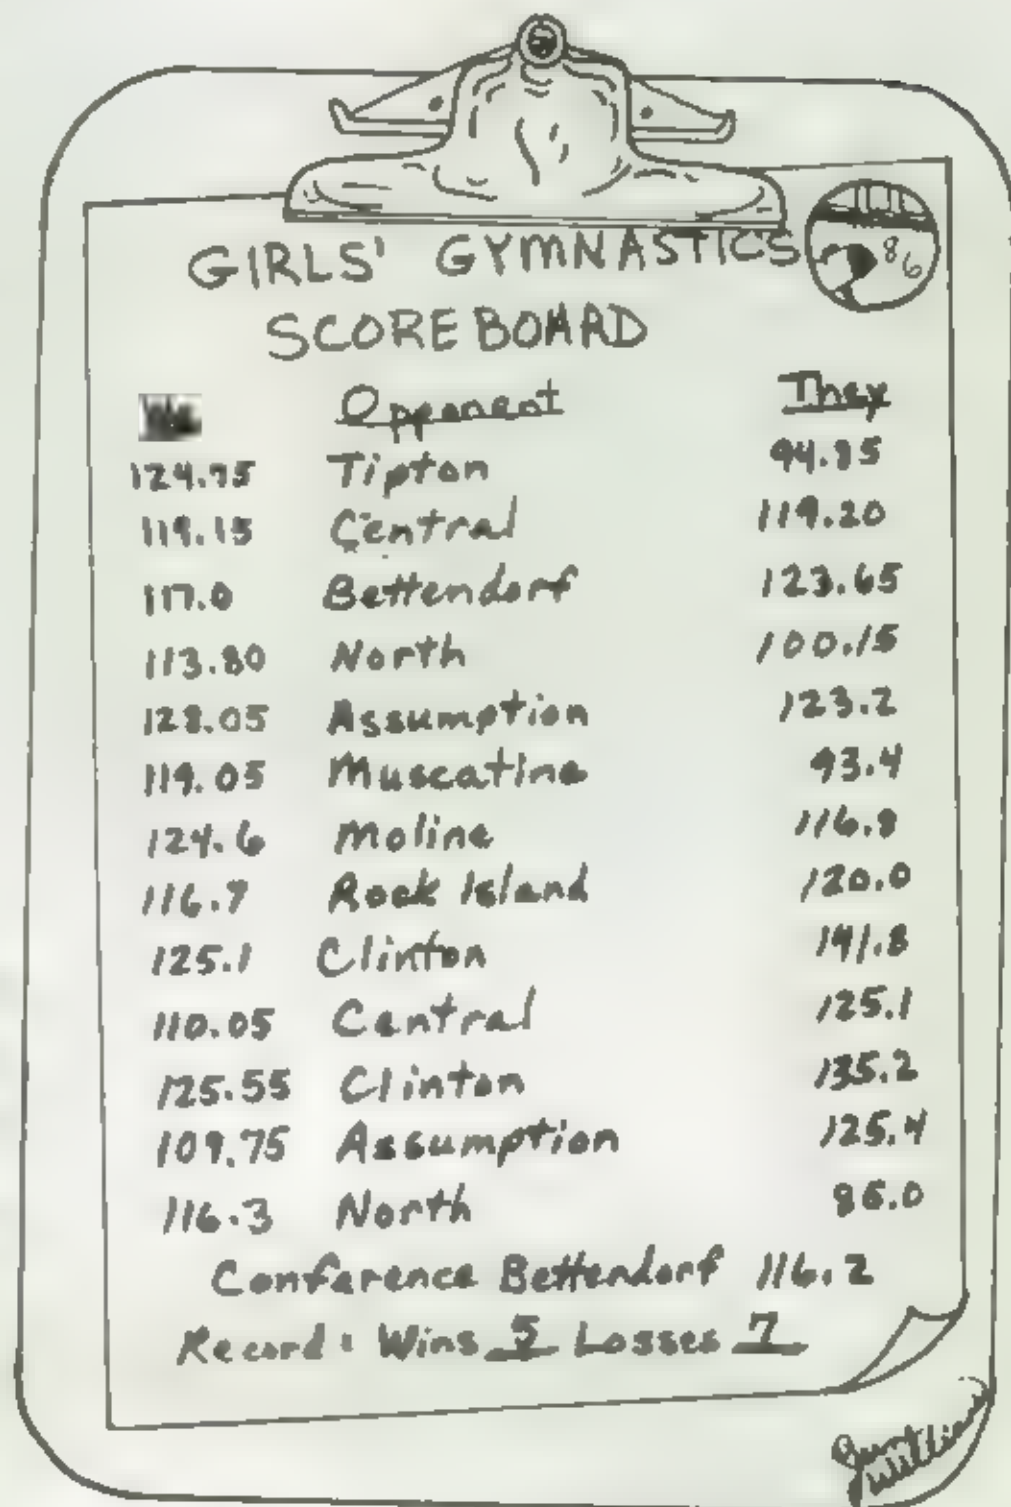 GIRLS' GYMNASTICS
86
SCOREBOARD
We Opponent They
124.75 Tipton 94.85
119.15 Central 119.20
117.0 Bettendorf 123.65
113.80 North 100.15
128.05 Assumption 123.2
119.05 Muscatine 93.4
124.6 Moline 116.8
116.9 Rock Island 120.0
125.1 Clinton 141.8
110.05 Central 125.1
125.55 Clinton 135.2
109.75 Assumption 125.4
116.3 North 86.0
Conference Bettendorf 116.2
Record: Wins 5 Losses 7